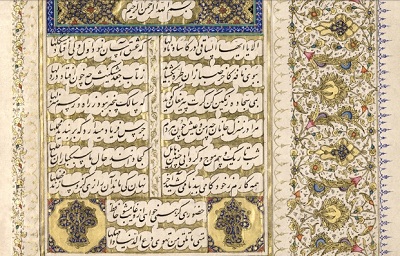 بسم الله الرحمن الرحیم
الا یا ایها الساقی ادر کاسا و ناولها که عشق آسان نمود اول ولی افتاد مشکلها
ببوی نافه کاخر صبا زان طره بگشاید ز تاب جعد مشکینش چه خون افتاد در دلها
بمی سجاده رنگین کن گرت پیر مغان گوید که سالک بیخبر نبود ز راه و رسم منزلها
مرا در منزل جانان چه امن عیش چون هر دم جرس فریاد میدارد که بربندید محملها
شب تاریک و بیم موج و گردابی چنین هایل کجا دانند حال ما سبکباران ساحلها
همه کارم ز خودکامی ببدنامی کشید آخر نهان کی ماند آن رازی کزو سازند محفلها
حضوری گر همی خواهی ازو غایب مشو حافظ
متی ما تلق من تهوی دع الدنیا و اهملها